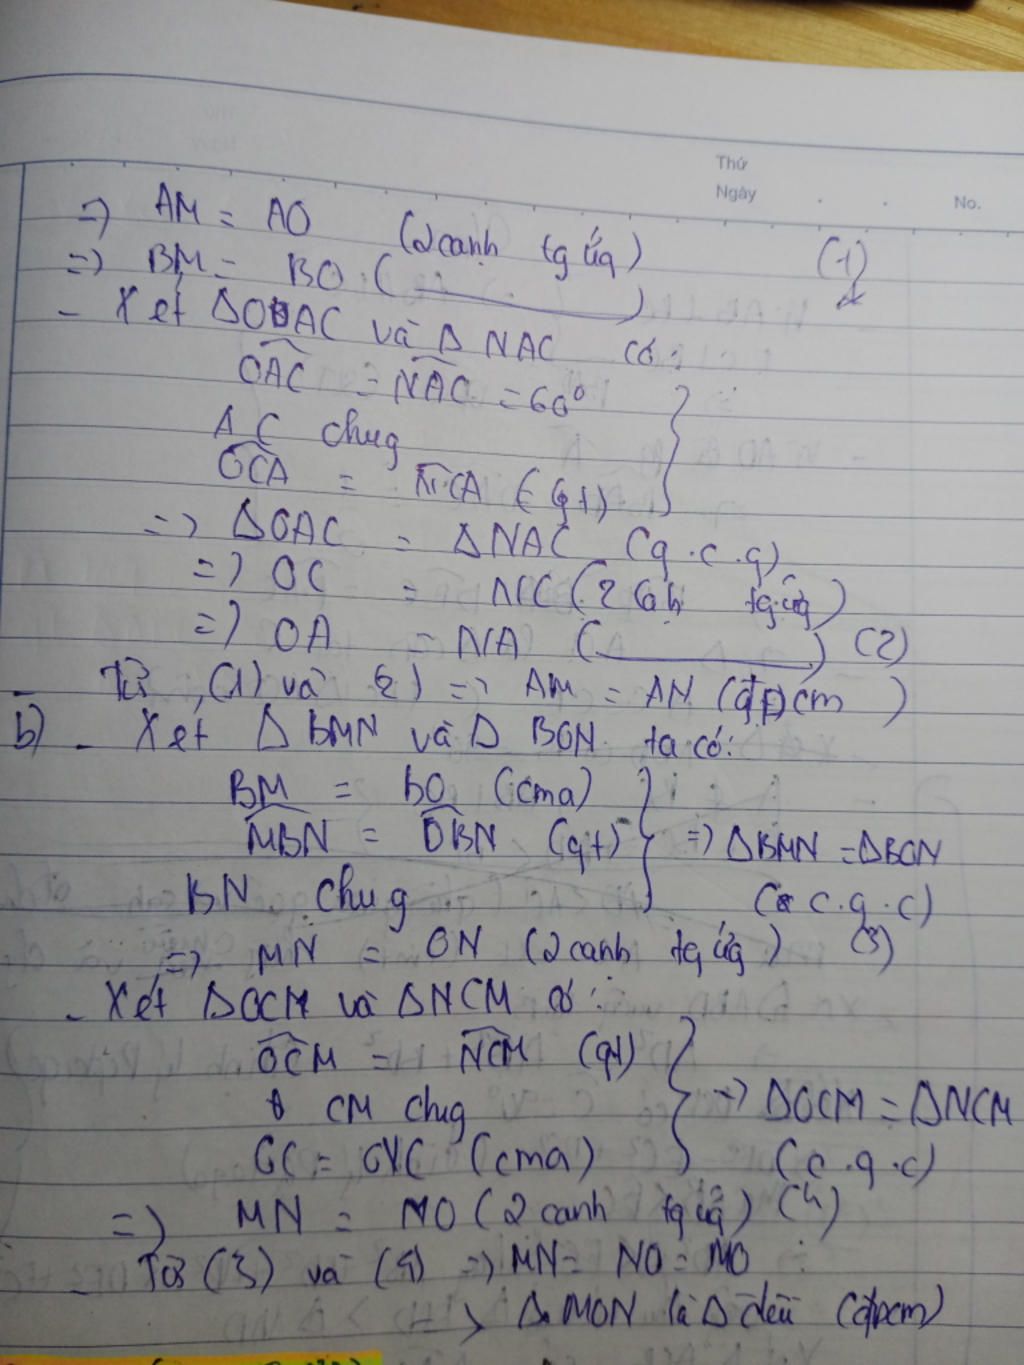 Thứ
Ngày
No.
=> AM = AO (2 cạnh tg ứg) (1)
=> BM = BO ( ______ )
- Xét ΔOAC và Δ NAC có:
OAC = NAC = 60°
AC chug
OCA = NCA (gt)
=> ΔOAC = ΔNAC (g.c.g)
=> OC = NC (2 cạh tg ứg)
=> OA = NA ( ______ ) (2)
- Từ (1) và (2) => AM = AN (đpcm)
b) - Xét Δ BMN và Δ BON ta có:
BM = BO (cma)
MBN = OBN (gt) => ΔBMN = ΔBON
BN chug (c.g.c)
=> MN = ON (2 cạnh tg ứg) (3)
- Xét ΔOCM và ΔNCM có:
OCM = NCM (gt)
CM chug => ΔOCM = ΔNCM
OC = NC (cma) (c.g.c)
=> MN = MO (2 cạnh tg ứg) (4)
- Từ (3) và (4) => MN = NO = MO
> Δ MON là Δ đều (đpcm)